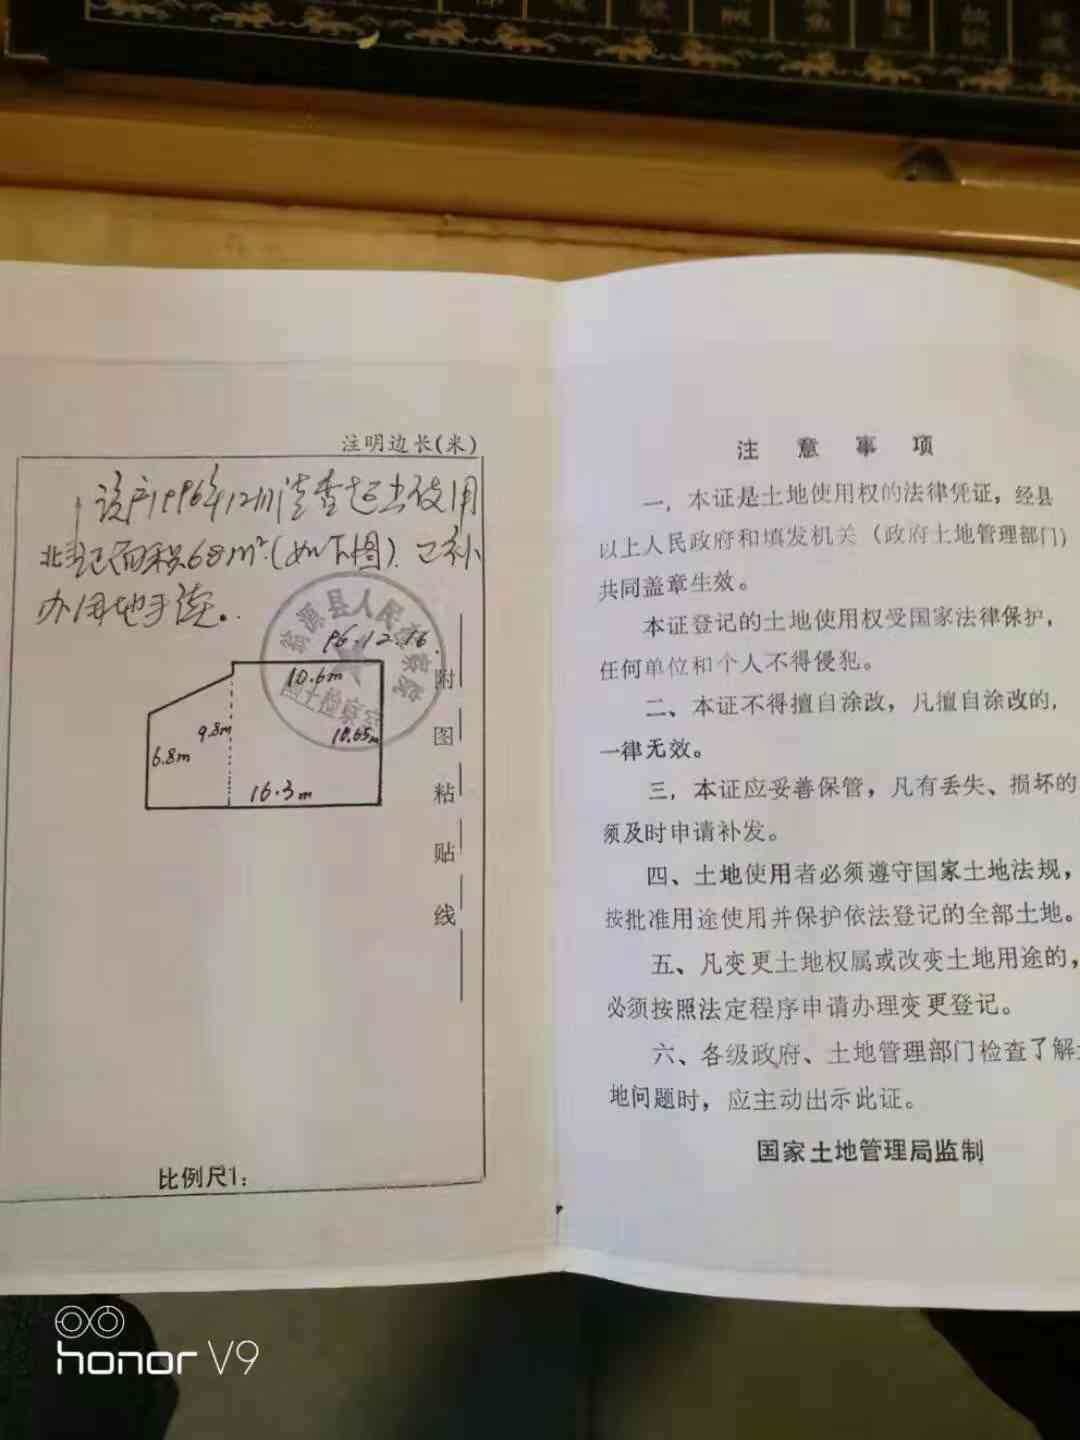 注明边长(米)
该户1996年12月清查超出使用
北 面积68m²(如下图).已补
办用地手续.
源县人民检察院
96.12.16.
10.6m
9.8m
10.65m
6.8m
16.3m
附图粘贴线
比例尺1:
注意事项
一,本证是土地使用权的法律凭证,经县
以上人民政府和填发机关(政府土地管理部门)
共同盖章生效。
本证登记的土地使用权受国家法律保护,
任何单位和个人不得侵犯。
二、本证不得擅自涂改,凡擅自涂改的,
一律无效。
三,本证应妥善保管,凡有丢失、损坏的
须及时申请补发。
四、土地使用者必须遵守国家土地法规,
按批准用途使用并保护依法登记的全部土地。
五、凡变更土地权属或改变土地用途的,
必须按照法定程序申请办理变更登记。
六、各级政府、土地管理部门检查了解土
地问题时,应主动出示此证。
国家土地管理局监制
honor V9